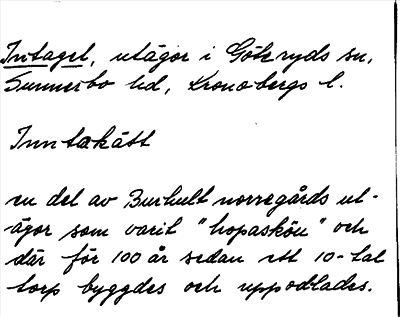 Intaget, utägor i Göteryds sn,
Sunnerbo hd, Kronobergs l.
Inntakått
en del av Burhult norregårds ut-
ägor som varit "hopasköu" och
där för 100 år sedan ett 10-tal
torp byggdes och uppodlades.